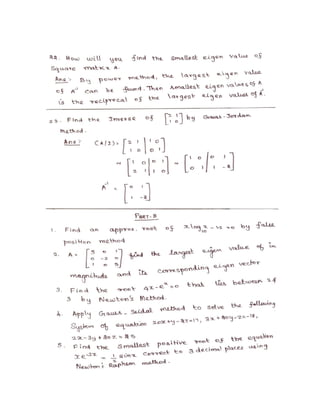 22. How will you find the smallest eigen value of
square matrix A.
Ans:- By power method, the largest eigen value
of A⁻¹ can be found. Then smallest eigen values of A
is the reciprocal of the largest eigen values of A⁻¹.
23. Find the Inverse of [2 1; 1 0] by Gauss-Jordan
Method.
Ans:- (A/I) = [2 1 | 1 0; 1 0 | 0 1]
~ [1 0 | 0 1; 2 1 | 1 0] ~ [1 0 | 0 1; 0 1 | 1 -2]
A⁻¹ = [0 1; 1 -2]
PART-B
1. Find an approx. root of x log₁₀ x -12 = 0 by false
position method
2. A = [5 0 1; 0 -2 0; 1 0 5] find the largest eigen value of in
magnitude and its corresponding eigen vector
3. Find the root 4x - eˣ = 0 that lies between 2 &
3 by Newton's Method
4. Apply Gauss - Seidal method to solve the following
System of equation 20x+y-2z=17, 3x+20y-z=-18,
2x-3y+20z=25
5. Find the smallest positive root of the equation
xe⁻²ˣ = ½ sinx correct to 3 decimal places using
Newton's Raphson method.